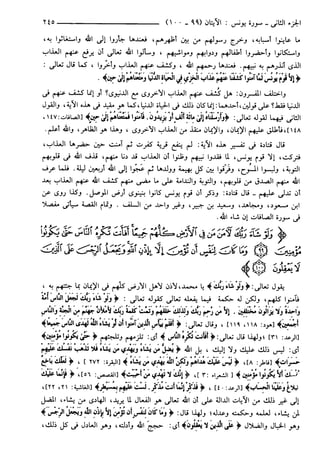 الجزء الثاني - سورة يونس : الآيتان (٩٩ - ١٠٠)
٢٤٥
ما عاينوا أسبابه، وخرج رسولهم من بين أظهرهم، فعندها جأروا إلى الله واستغاثوا به،
واستكانوا وأحضروا أطفالهم ودوابهم ومواشيهم ، وسألوا الله تعالى أن يرفع عنهم العذاب
الذي أنذرهم به نبيهم. فعندها رحمهم الله ، وكشف عنهم العذاب وأخروا ، كما قال تعالى :
﴿ إِلَّا قَوْمَ يُونُسَ لَمَّا آمَنُوا كَشَفْنَا عَنْهُمْ عَذَابَ الْخِزْيِ فِي الْحَيَاةِ الدُّنْيَا وَمَتَّعْنَاهُمْ إِلَى حِينٍ ﴾ .
واختلف المفسرون: هل كُشف عنهم العذاب الأخروي مع الدنيوي؟ أو إنما كشف عنهم في
الدنيا فقط؟ على قولين، أحدهما: إنما كان ذلك في الحياة الدنيا، كما هو مقيد في هذه الآية، والقول
الثاني فيهما لقوله تعالى: ﴿ وَأَرْسَلْنَاهُ إِلَى مِائَةِ أَلْفٍ أَوْ يَزِيدُونَ . فَآمَنُوا فَمَتَّعْنَاهُمْ إِلَى حِينٍ ﴾ [الصافات: ١٤٧،
١٤٨]، فأطلق عليهم الإيمان، والإيمان منقذ من العذاب الأخروي ، وهذا هو الظاهر، والله أعلم.
قال قتادة في تفسير هذه الآية: لم ينفع قرية كفرت ثم آمنت حين حضرها العذاب،
فتركت، إلا قوم يونس، لما فقدوا نبيهم وظنوا أن العذاب قد دنا منهم، قذف الله في قلوبهم
التوبة، ولبسوا المسوح، وفرقوا بين كل بهيمة وولدها ثم عجوا إلى الله أربعين ليلة. فلما عرف
الله منهم الصدق من قلوبهم، والتوبة والندامة على ما مضى منهم كشف الله عنهم العذاب بعد
أن تدلى عليهم ـ قال قتادة: وذكر أن قوم يونس كانوا بنينوى أرض الموصل. وكذا روى عن
ابن مسعود، ومجاهد، وسعيد بن جبير، وغير واحد من السلف . وتمام القصة سيأتي مفصلا
في سورة الصافات إن شاء الله.
﴿ وَلَوْ شَاءَ رَبُّكَ لَآمَنَ مَنْ فِي الْأَرْضِ كُلُّهُمْ جَمِيعًا أَفَأَنْتَ تُكْرِهُ النَّاسَ حَتَّى يَكُونُوا
مُؤْمِنِينَ ﴿٩٩﴾ وَمَا كَانَ لِنَفْسٍ أَنْ تُؤْمِنَ إِلَّا بِإِذْنِ اللَّهِ وَيَجْعَلُ الرِّجْسَ عَلَى الَّذِينَ
لَا يَعْقِلُونَ ﴿١٠٠﴾ ﴾
يقول تعالى: ﴿ وَلَوْ شَاءَ رَبُّكَ ﴾ يا محمد، لأذن لأهل الأرض كلهم في الإيمان بما جئتهم به ،
فآمنوا كلهم، ولكن له حكمة فيما يفعله تعالى كقوله تعالى : ﴿ وَلَوْ شَاءَ رَبُّكَ لَجَعَلَ النَّاسَ أُمَّةً
وَاحِدَةً وَلَا يَزَالُونَ مُخْتَلِفِينَ . إِلَّا مَنْ رَحِمَ رَبُّكَ وَلِذَلِكَ خَلَقَهُمْ وَتَمَّتْ كَلِمَةُ رَبِّكَ لَأَمْلَأَنَّ جَهَنَّمَ مِنَ الْجِنَّةِ وَالنَّاسِ
أَجْمَعِينَ ﴾ [هود: ١١٨، ١١٩] ، وقال تعالى: ﴿ أَفَلَمْ يَيْأَسِ الَّذِينَ آمَنُوا أَنْ لَوْ يَشَاءُ اللَّهُ لَهَدَى النَّاسَ جَمِيعًا ﴾
[الرعد: ٣١] ؛ ولهذا قال تعالى: ﴿ أَفَأَنْتَ تُكْرِهُ النَّاسَ ﴾ أي: تلزمهم وتلجئهم ﴿ حَتَّى يَكُونُوا مُؤْمِنِينَ ﴾
أي: ليس ذلك عليك ولا إليك، بل الله ﴿ يُضِلُّ مَنْ يَشَاءُ وَيَهْدِي مَنْ يَشَاءُ فَلَا تَذْهَبْ نَفْسُكَ عَلَيْهِمْ
حَسَرَاتٍ ﴾ [فاطر: ٨]، ﴿ لَيْسَ عَلَيْكَ هُدَاهُمْ وَلَكِنَّ اللَّهَ يَهْدِي مَنْ يَشَاءُ ﴾ [البقرة: ٢٧٢] ، ﴿ لَعَلَّكَ بَاخِعٌ
نَفْسَكَ أَلَّا يَكُونُوا مُؤْمِنِينَ ﴾ [الشعراء: ٣]، ﴿ إِنَّكَ لَا تَهْدِي مَنْ أَحْبَبْتَ ﴾ [القصص: ٥٦]، ﴿ فَإِنَّمَا عَلَيْكَ
الْبَلَاغُ وَعَلَيْنَا الْحِسَابُ ﴾ [الرعد: ٤٠]، ﴿ فَذَكِّرْ إِنَّمَا أَنْتَ مُذَكِّرٌ . لَسْتَ عَلَيْهِمْ بِمُصَيْطِرٍ ﴾ [الغاشية: ٢١، ٢٢]،
إلى غير ذلك من الآيات الدالة على أن الله تعالى هو الفعال لما يريد، الهادي من يشاء، المضل
لمن يشاء، لعلمه وحكمته وعدله؛ ولهذا قال: ﴿ وَمَا كَانَ لِنَفْسٍ أَنْ تُؤْمِنَ إِلَّا بِإِذْنِ اللَّهِ وَيَجْعَلُ الرِّجْسَ ﴾
وهو الخبال والضلال ﴿ عَلَى الَّذِينَ لَا يَعْقِلُونَ ﴾ أي: حجج الله وأدلته، وهو العادل في كل ذلك،